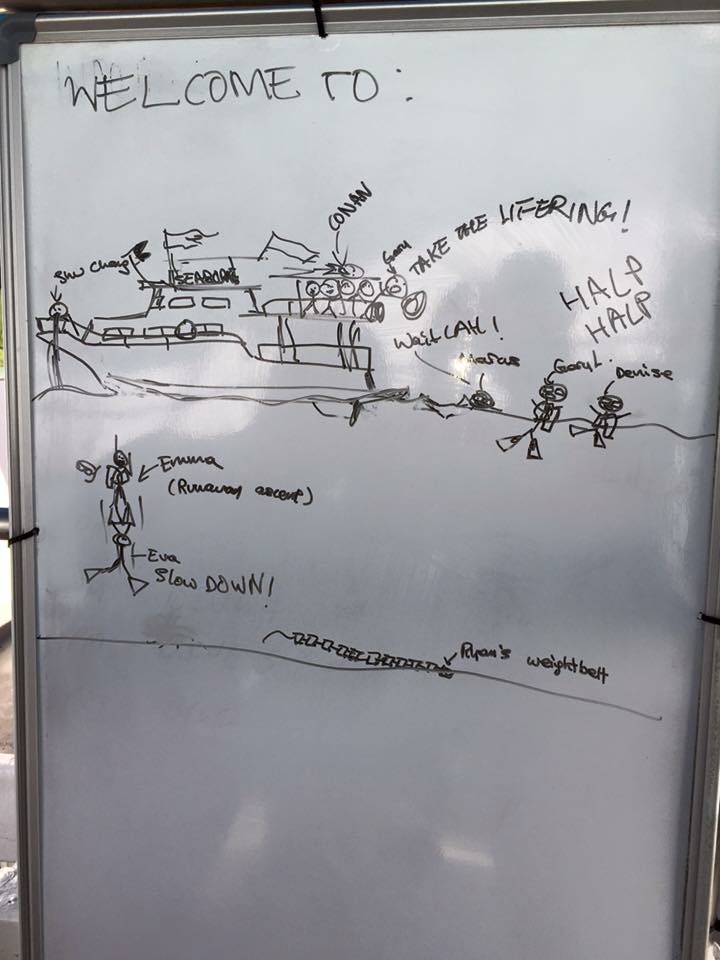 WELCOME TO:
CONAN
Gary
TAKE THE LIFERING!
Shu Chang
HALP
HALP
Wait LAH!
Marcus
Gary L.
Denise
Emma
(Runaway ascent)
Eva
Slow DOWN!
Ryan's weightbelt